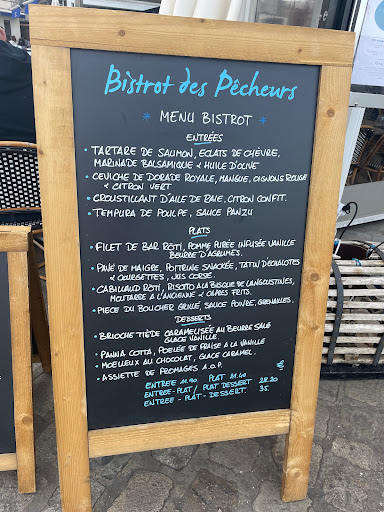 Bistrot des Pêcheurs
* MENU BISTROT *
ENTRÉES
• TARTARE DE SAUMON, ECLATS DE CHÈVRE,
MARINADE BALSAMIQUE & HUILE D'OLIVE
• CEVICHE DE DORADE ROYALE, MANGUE, OIGNONS ROUGE
& CITRON VERT
• CROUSTILLANT D'AILE DE RAIE, CITRON CONFIT.
• TEMPURA DE POULPE, SAUCE PANZU
PLATS
• FILET DE BAR RÔTI, POMME PURÉE INFUSÉE VANILLE
BEURRE D'AGRUMES.
• PAVÉ DE MAIGRE, POITRINE SNACKÉE, TATIN D'ÉCHALOTES
& COURGETTES, JUS CORSÉ.
• CABILLAUD RÔTI, RISOTTO À LA BISQUE DE LANGOUSTINES,
MOUTARDE A L'ANCIENNE & CAPRES FRITS.
• PIECE DU BOUCHER GRILLÉ, SAUCE POIVRE, GRENAILLES.
DESSERTS
• BRIOCHE TIÈDE CARAMELISÉE AU BEURRE SALÉ
GLACE VANILLE.
• PANNA COTTA, POELÉE DE FRAISE A LA VANILLE
• MOELLEUX AU CHOCOLAT, GLACE CARAMEL.
• ASSIETTE DE FROMAGES A.O.P. €
ENTREE 11.90 PLAT 21.40
ENTREE-PLAT / PLAT DESSERT 28.20
ENTREE - PLAT - DESSERT. 35.